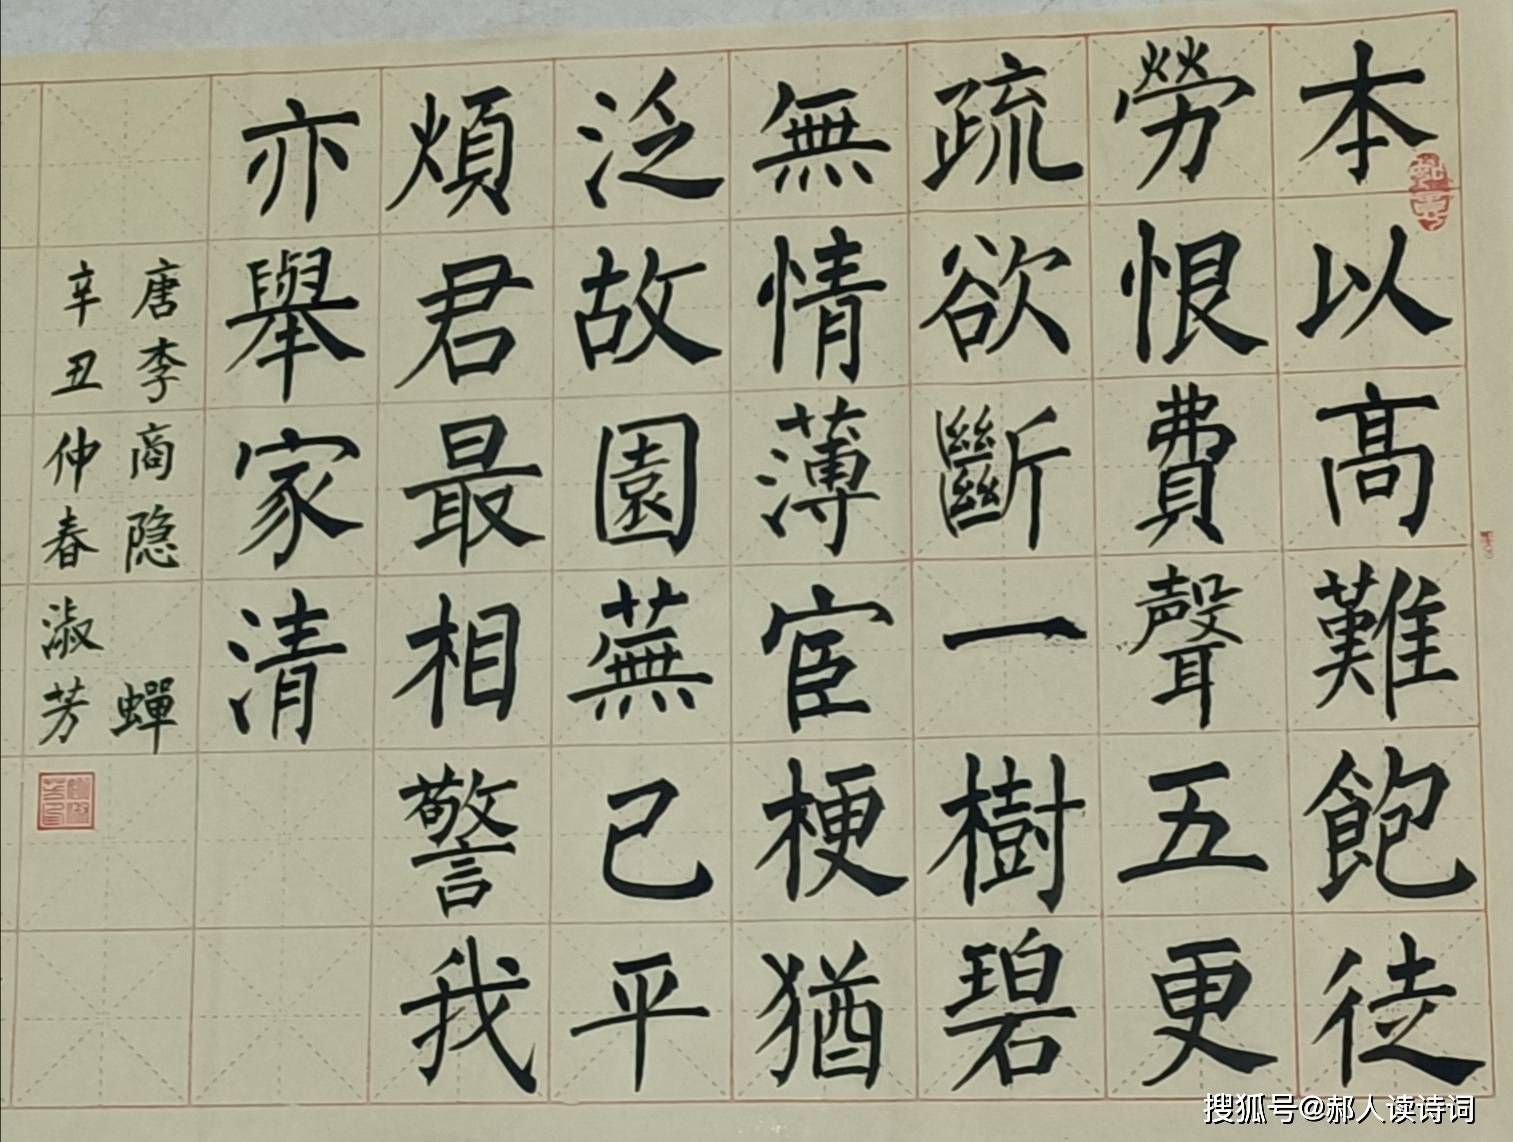 本以高難飽徒
勞恨費聲五更
疏欲斷一樹碧
無情薄宦梗猶
泛故園蕪己平
煩君最相警我
亦舉家清
唐李商隐 蟬
辛丑仲春淑芳
搜狐号@郝人读诗词